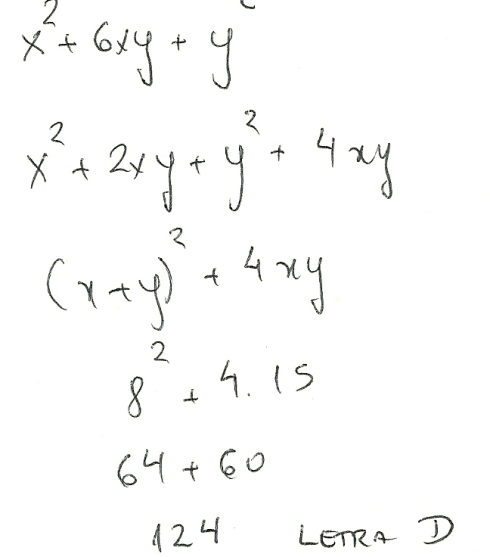 x² + 6xy + y²
x² + 2xy + y² + 4xy
(x+y)² + 4xy
8² + 4.15
64 + 60
124 LETRA D